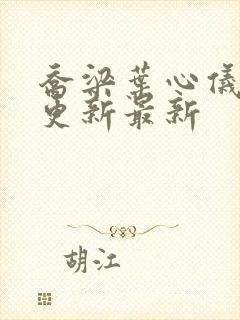 乔梁叶心仪
更新最新
胡江